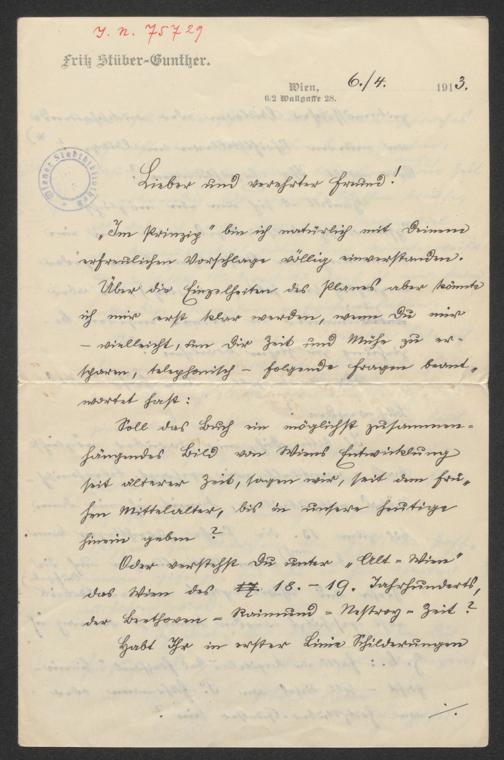 J. N. 75729
Fritz Stüber-Gunther.
Wien, 6./4. 1913.
6/2 Wallgasse 28.
Wiener Stadtbibliothek
Lieber und verehrter Freund!
„Im Prinzip" bin ich natürlich mit Deinem
erfreulichen Vorschlage völlig einverstanden.
Über die Einzelheiten des Planes aber könnte
ich mir erst klar werden, wenn Du mir
– vielleicht, um Dir Zeit und Mühe zu er-
sparen, telephonisch – folgende Fragen beant-
wortet hast:
Soll das Buch ein möglichst zusammen-
hängendes Bild von Wiens Entwicklung
seit älterer Zeit, sagen wir, seit dem frü-
hen Mittelalter, bis in unsere heutige
hinein geben?
Oder verstehst Du unter „Alt-Wien"
das Wien des 17. 18.–19. Jahrhunderts,
der Beethoven-Raimund-Nestroy-Zeit?
Habt Ihr in erster Linie Schilderungen
./.